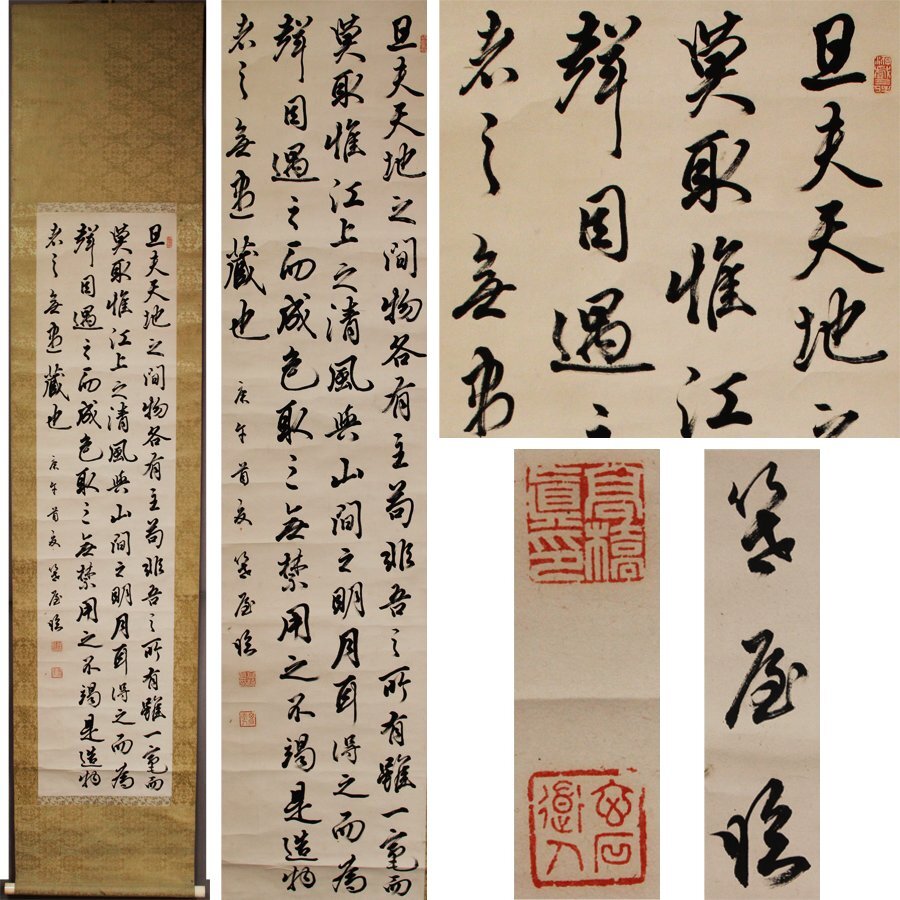 且夫天地之間物各有主苟非吾之所有雖一毫而
莫取惟江上之清風與山間之明月耳得之而為
聲目遇之而成色取之無禁用之不竭是造物
者之無盡藏也 庚午首夏 屋臨
且夫天地之間物各有主苟非吾之所有雖一毫而
莫取惟江上之清風與山間之明月耳得之而為
聲目遇之而成色取之無禁用之不竭是造物
者之無盡藏也 庚午首夏 屋臨
且夫天地之
莫取惟江
聲目遇之
者之無盡
高橋
真印
玄石
道人
屋臨